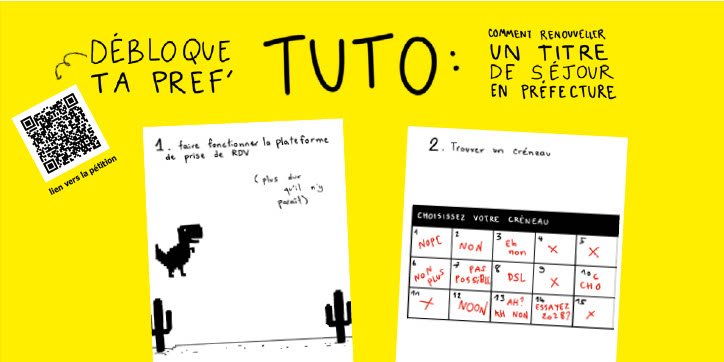 DÉBLOQUE
TA PREF'
TUTO:
COMMENT RENOUVELLER
UN TITRE
DE SÉJOUR
EN PRÉFECTURE
lien vers la pétition
1. faire fonctionner la plateforme
de prise de RDV
(plus dur
qu'il n'y
parait)
2. Trouver un créneau
CHOISISSEZ VOTRE CRÉNEAU
1 NOPE
2 NON
3 Eh non
4 X
5 X
6 NON PLUS
7 PAS POSSIBLE
8 DSL
9 X
10 C CHO
11 X
12 NOON
13 AH? AH NON
14 ESSAYEZ 2028?
15 X